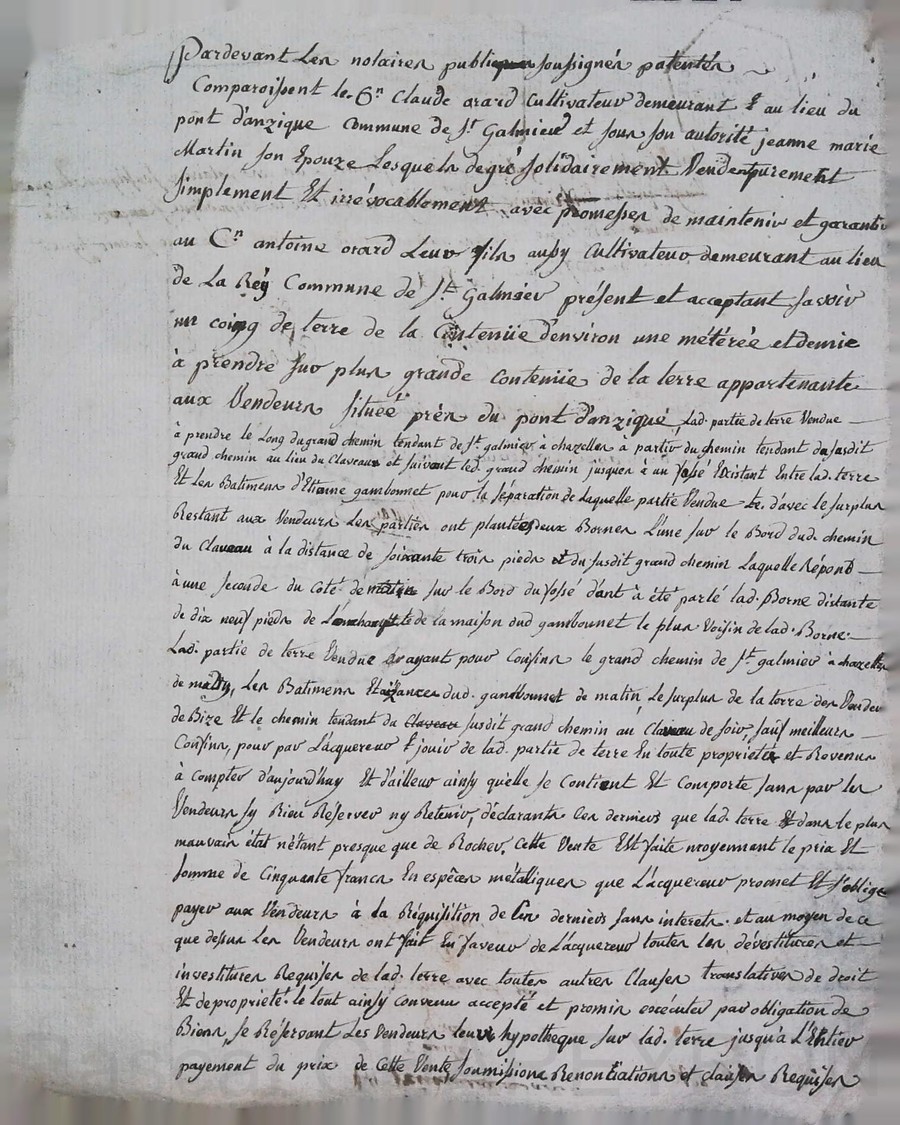 Pardevant Les notaires publiques soussignés patentés
Comparoissent le Cn Claude orard Cultivateur demeurant Et au lieu du
pont d'anzique Commune de St Galmier et sous son autorité jeanne marie
Martin son Epouze Lesquels degré solidairement Vendent purement
simplement Et irrévocablement avec promesses de maintenir et garantir
au Cn antoine orard Leur fils aussy Cultivateur demeurant au lieu
de La Rey Commune de St Galmier présent et acceptant savoir
un coing de terre de la Contenüe d'environ une métérée et demie
à prendre sur plus grande contenüe de la terre appartenante
aux Vendeurs situéé près du pont d'anzique, Lad. partie de terre Vendue
à prendre le Long du grand chemin tendant de St galmier à chazelles à partir du chemin tendant du susdit
grand chemin au lieu du Claveau et suivant led. grand chemin jusques a un fossé Existant Entre lad. terre
Et Les Batimens d'Etienne gambonnet pour la séparation de Laquelle partie Vendue d'avec le surplus
Restant aux Vendeurs Les parties ont plantées deux Bornes L'une sur le Bord dud. chemin
du Claveau à la distance de soixante trois pieds du susdit grand chemin Laquelle Répond
à une seconde du coté de matin sur le Bord du fossé dont à été parlé lad. Borne distante
de dix neuf pieds de de la maison dud gambonnet le plus Voisin de lad. Borne.
Lad. partie de terre Vendue ayant pour Confins le grand chemin de St galmier à chazelles
de Les Batimens Et aizances dud. gambonnet de matin Le surplus de la terre des Vendeurs
de Bize Et le chemin tendant du Claveau susdit grand chemin au Claveau de soir, sauf meilleurs
Confins, pour par L'acquereur Et jouir de lad. partie de terre En toute proprietés et Revenus
à compter d'aujourd'huy Et d'ailleur ainsy qu'elle se Contient Et Comporte sans par les
Vendeurs sy Rien Réserver ny Retenir, déclarants Ces derniers que lad. terre Est dans le plus
mauvais état n'étant presque que de Rocher, Cette Vente Est faite moyennant le prix Et
somme de Cinquante francs En espêces métalliques que L'acquereur promet Et s'oblige
payer aux Vendeurs à la Réquisition de Ces derniers sans interets. et au moyen de ce
que dessus Les Vendeurs ont fait En faveur de L'acquereur toutes les dévestitures et
investitures Requises de lad. terre avec toutes autres Clauses translatives de droit
Et de proprieté. le tout ainsy convenu accepté et promis exécuter par obligation de
Biens se Réservant Les Vendeurs leur hypotheque sur lad. terre jusqu'à L'Entier
payement du prix de Cette Vente soumissions Renontiations et clauses Requises